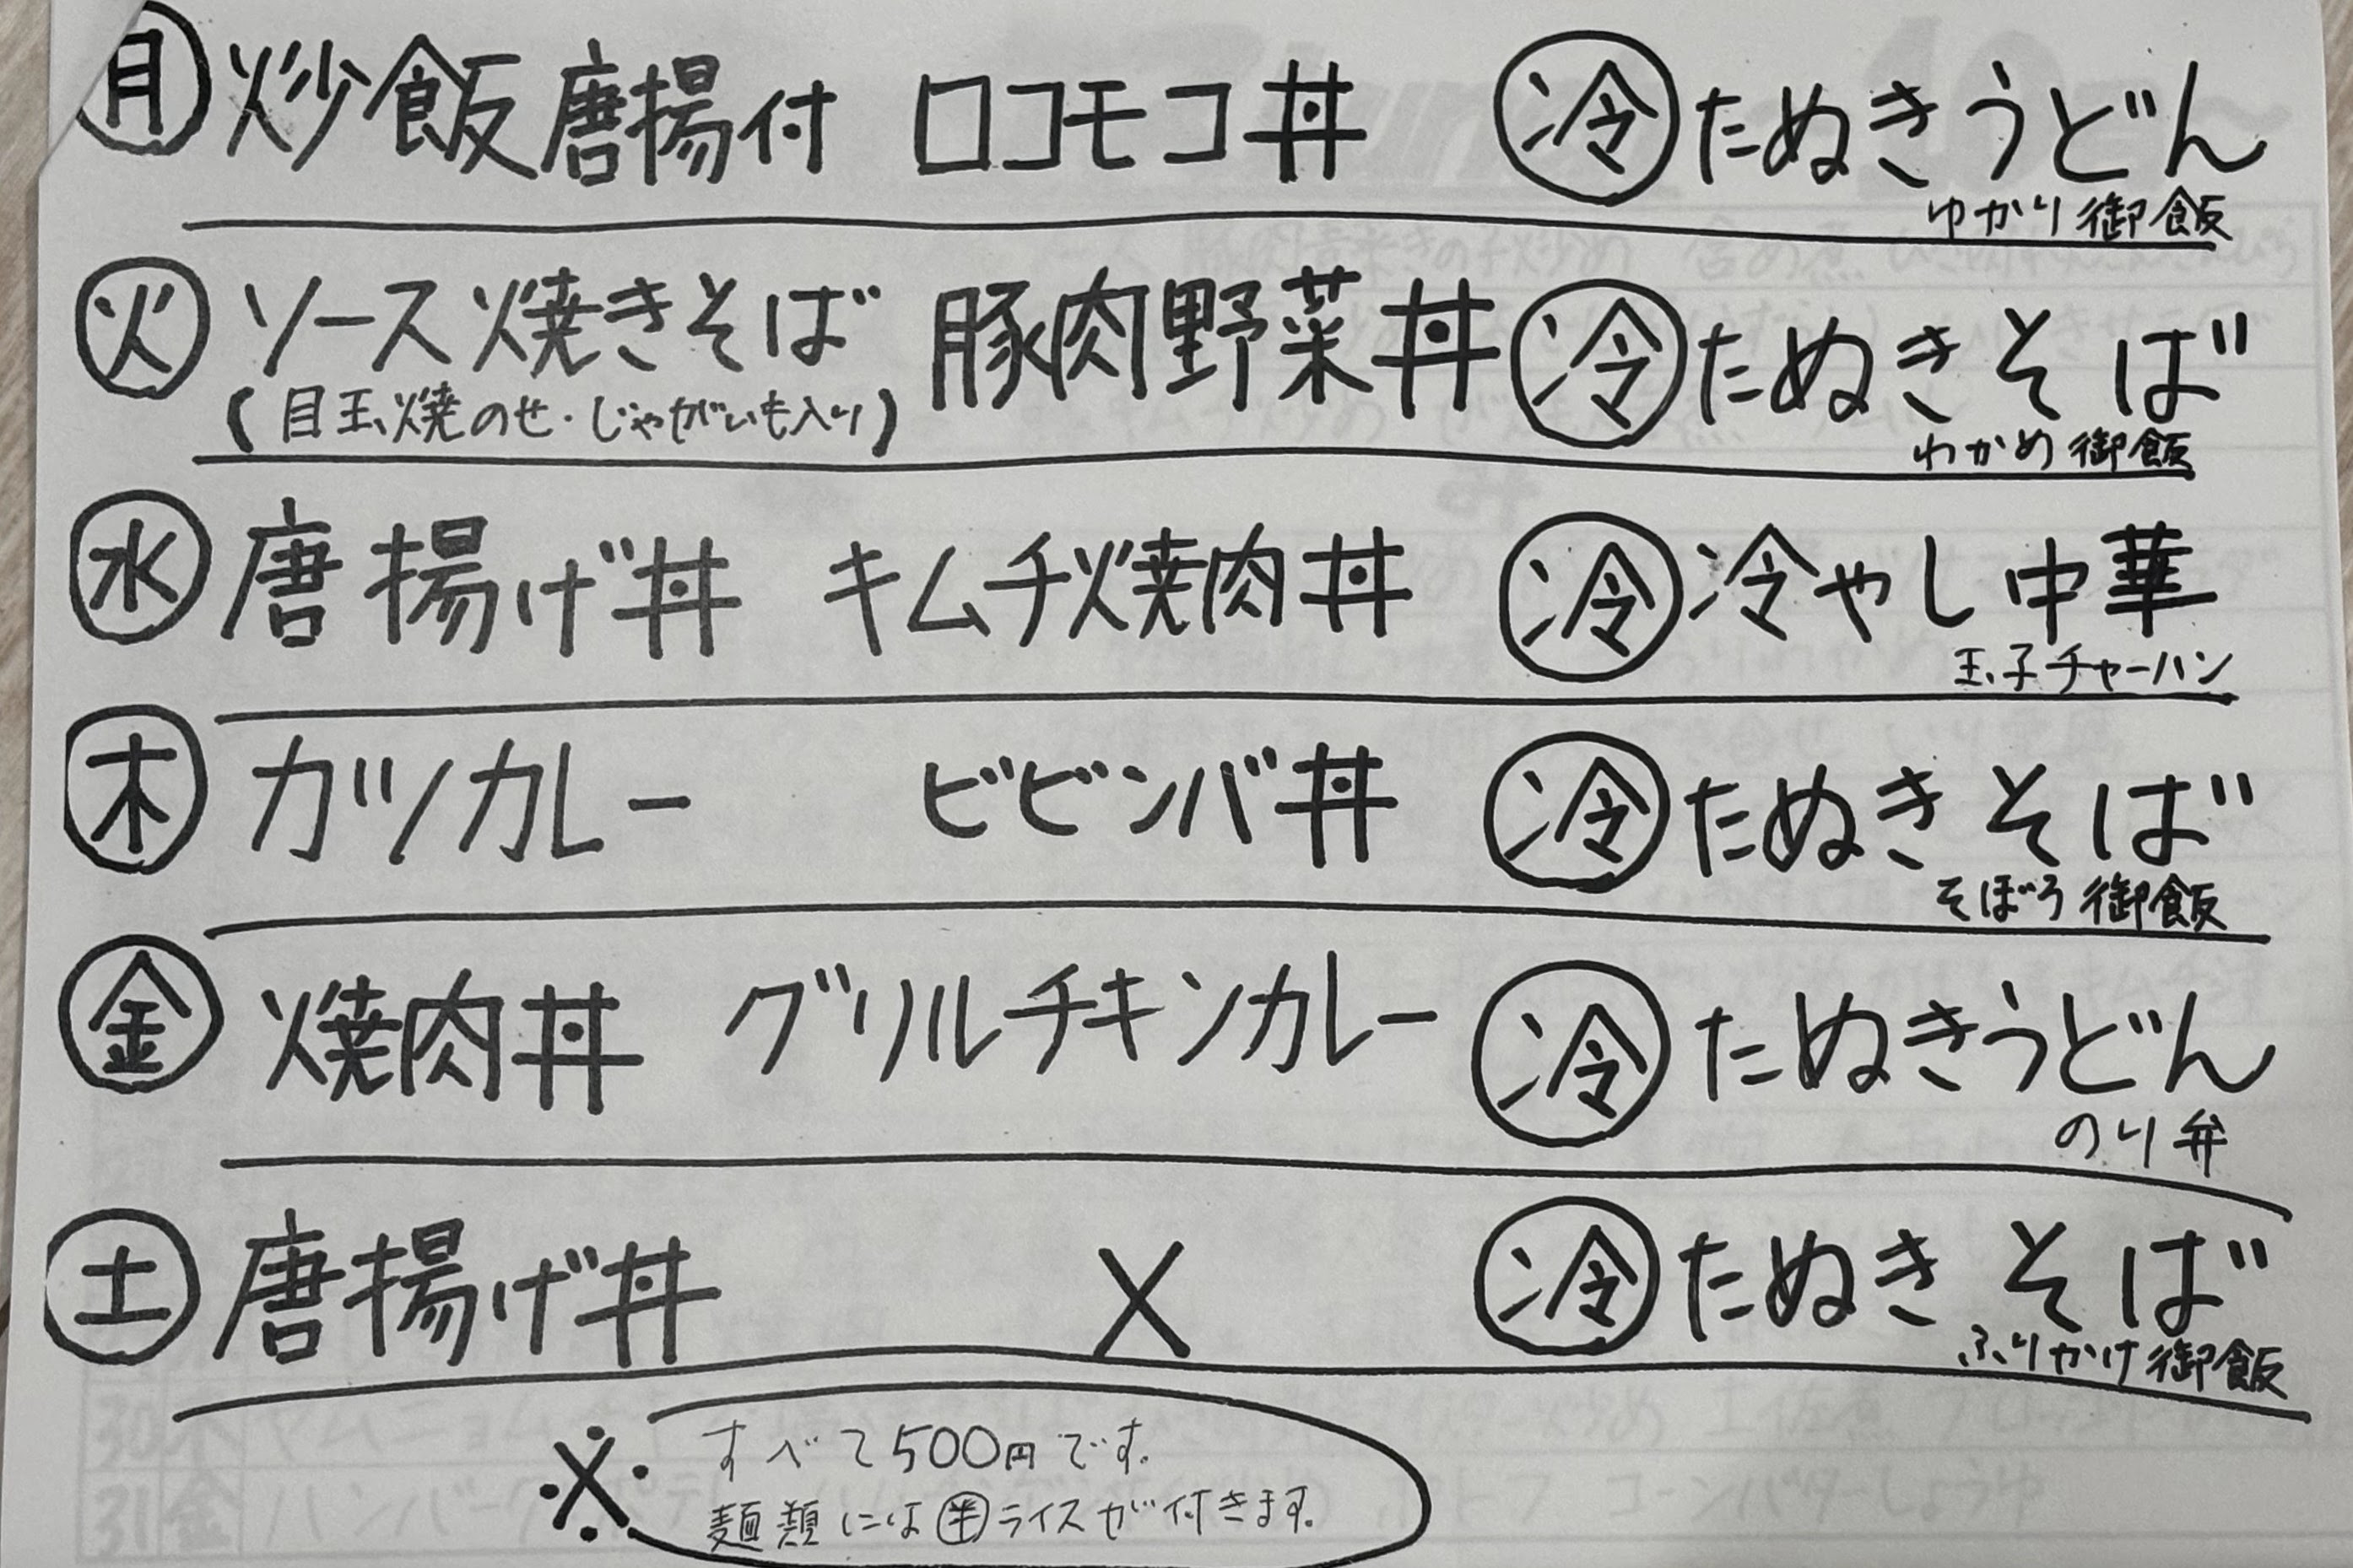 月 炒飯唐揚付 ロコモコ丼 冷 たぬきうどん
ゆかり御飯
火 ソース焼きそば 豚肉野菜丼 冷 たぬきそば
(目玉焼のせ・じゃがいも入り)
わかめ御飯
水 唐揚げ丼 キムチ焼肉丼 冷 冷やし中華
玉子チャーハン
木 カツカレー ビビンバ丼 冷 たぬきそば
そぼろ御飯
金 焼肉丼 グリルチキンカレー 冷 たぬきうどん
のり弁
土 唐揚げ丼 × 冷 たぬきそば
ふりかけ御飯
※ すべて500円です。
麺類には半ライスが付きます。